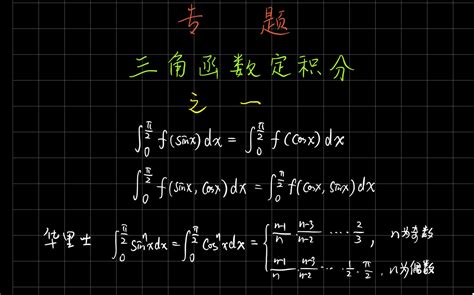 专 题
三角函数定积分
之一
∫₀^{π/2} f(sinx)dx = ∫₀^{π/2} f(cosx)dx
∫₀^{π/2} f(sinx, cosx)dx = ∫₀^{π/2} f(cosx, sinx)dx
华里士 ∫₀^{π/2} sinⁿxdx = ∫₀^{π/2} cosⁿxdx = { (n-1)/n · (n-3)/(n-2) ⋯ 2/3, n为奇数
(n-1)/n · (n-3)/(n-2) ⋯ 1/2 · π/2, n为偶数